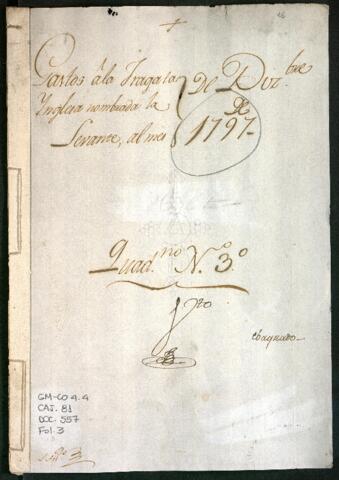 +
Gastos à la Fragata
Inglesa nombrada la
Levante, al mes
De Diz.bre
de
1797
Quad.no N.º 3º
coagnado
GM-CO 4.4
CAJ. 81
DOC. 557
Fol. 3